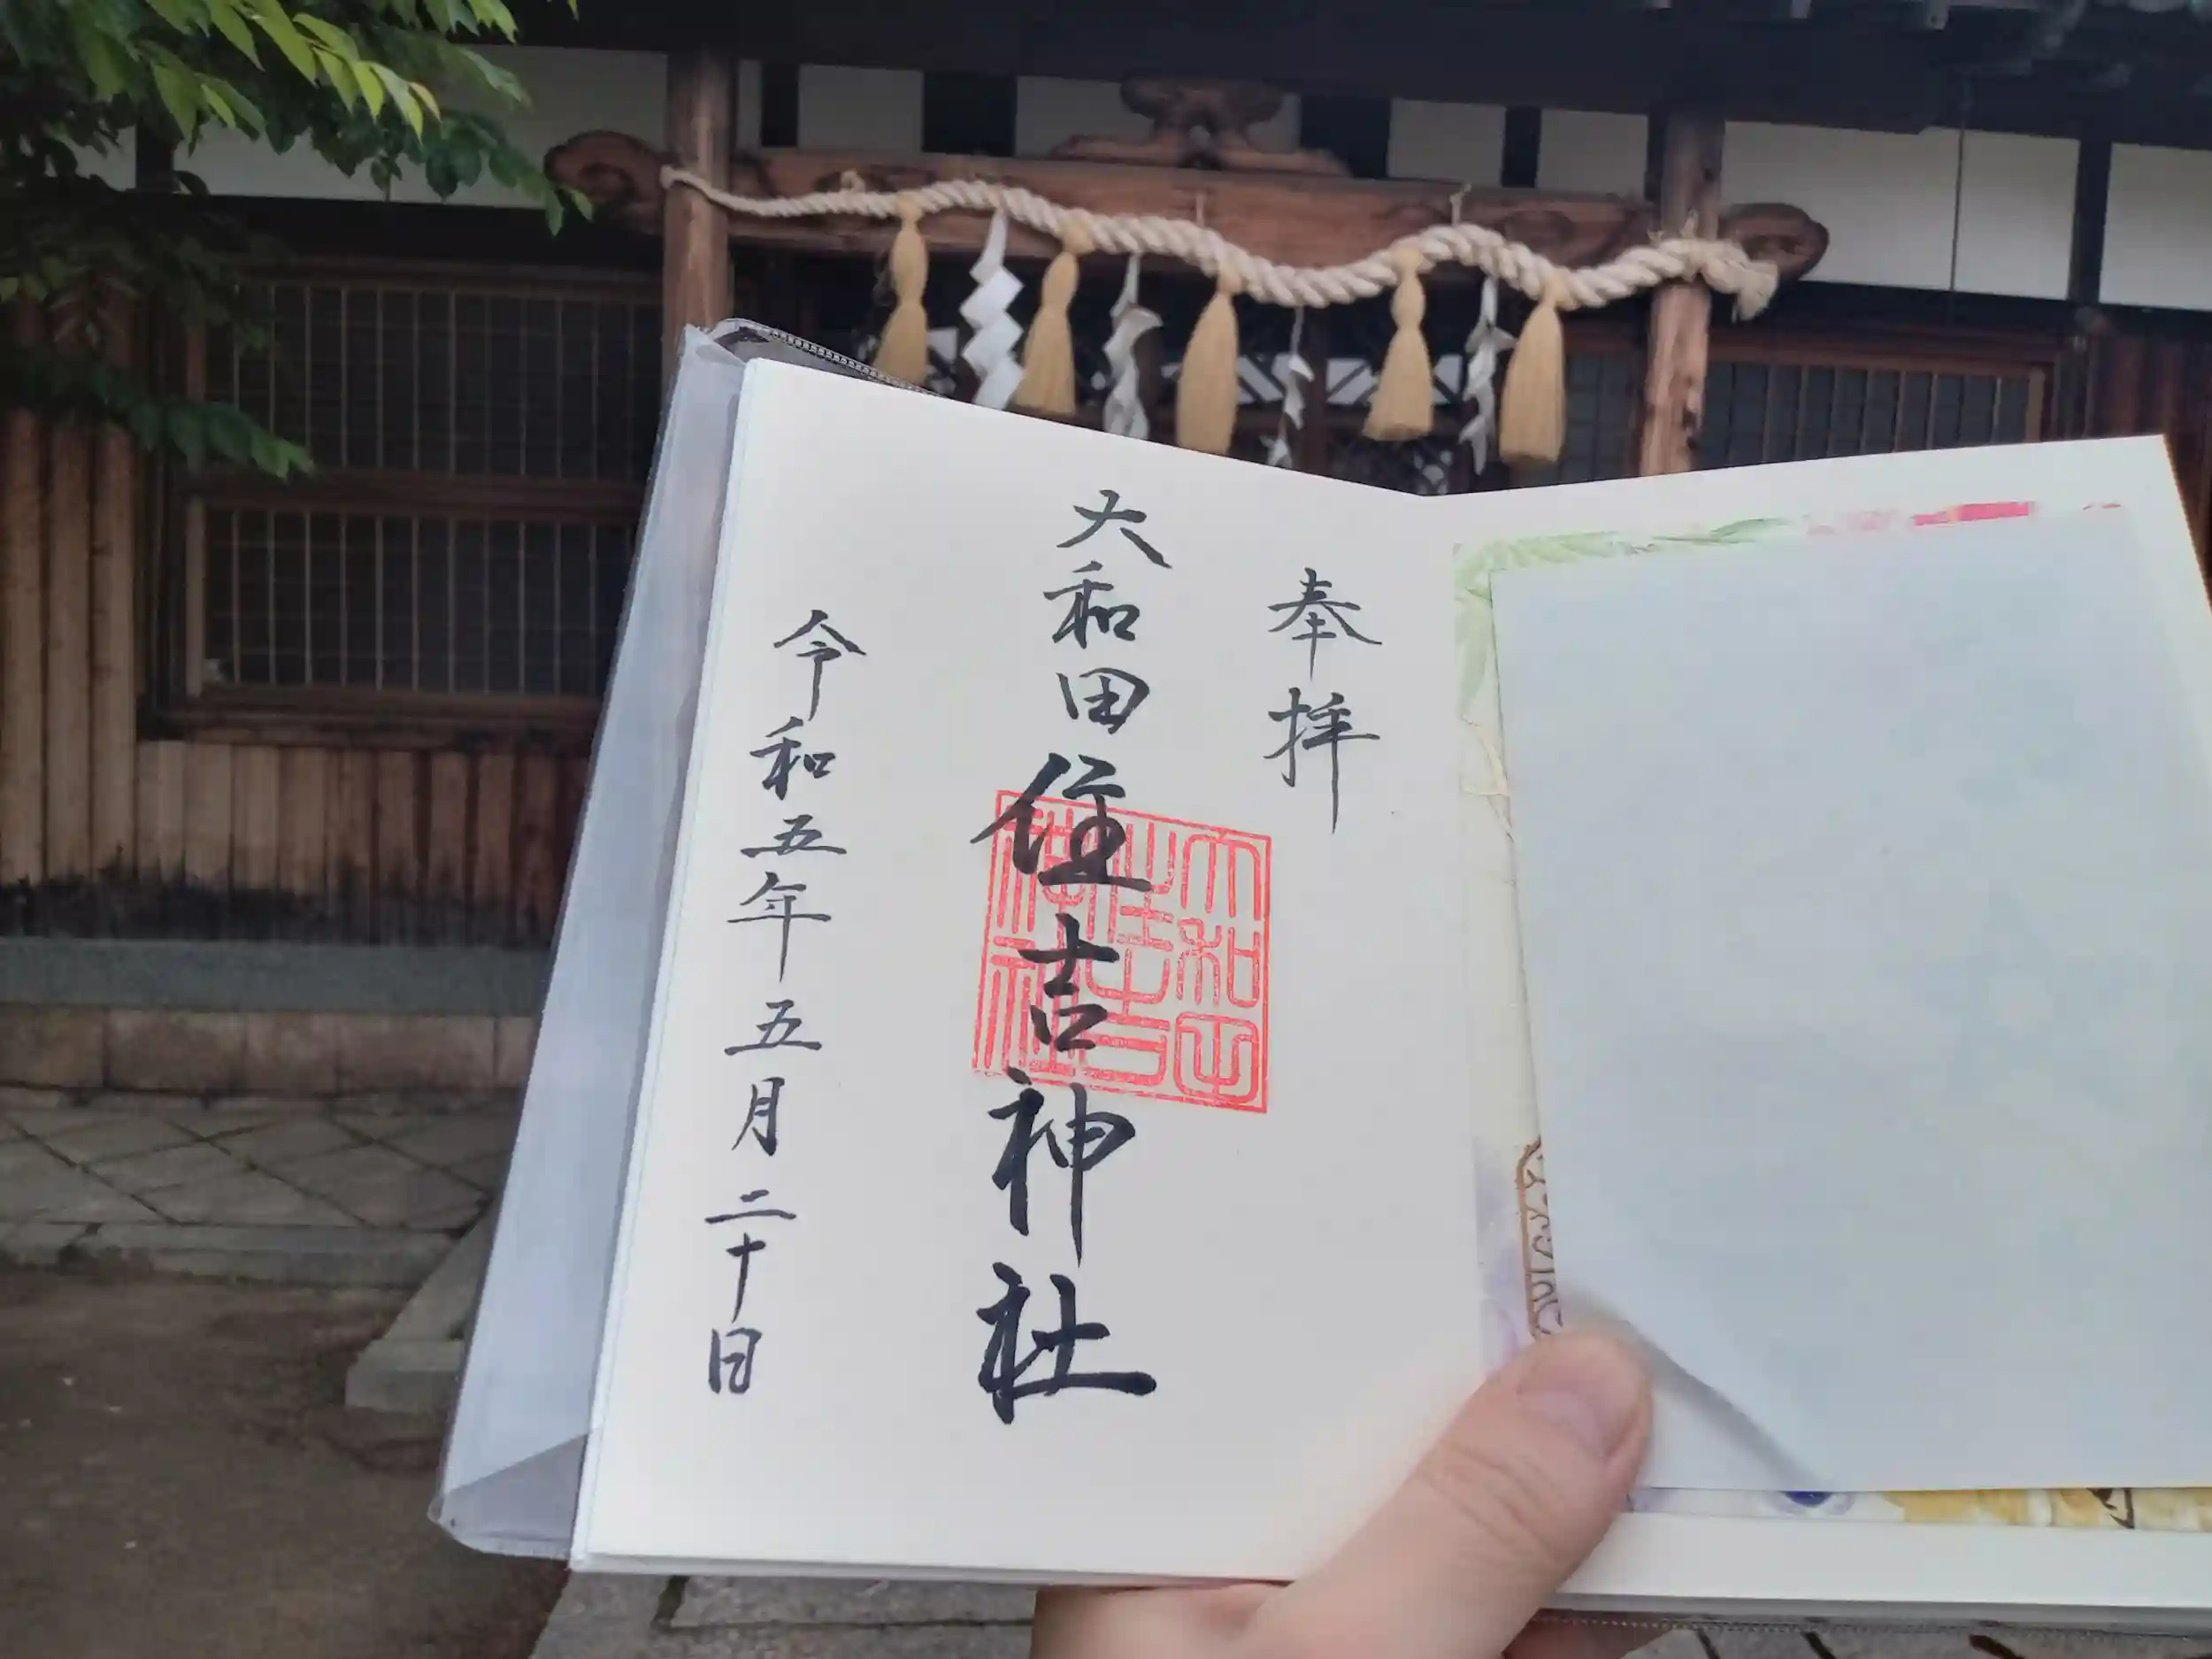 奉拝
大和田住吉神社
令和五年五月二十日
大和田
住吉
神社